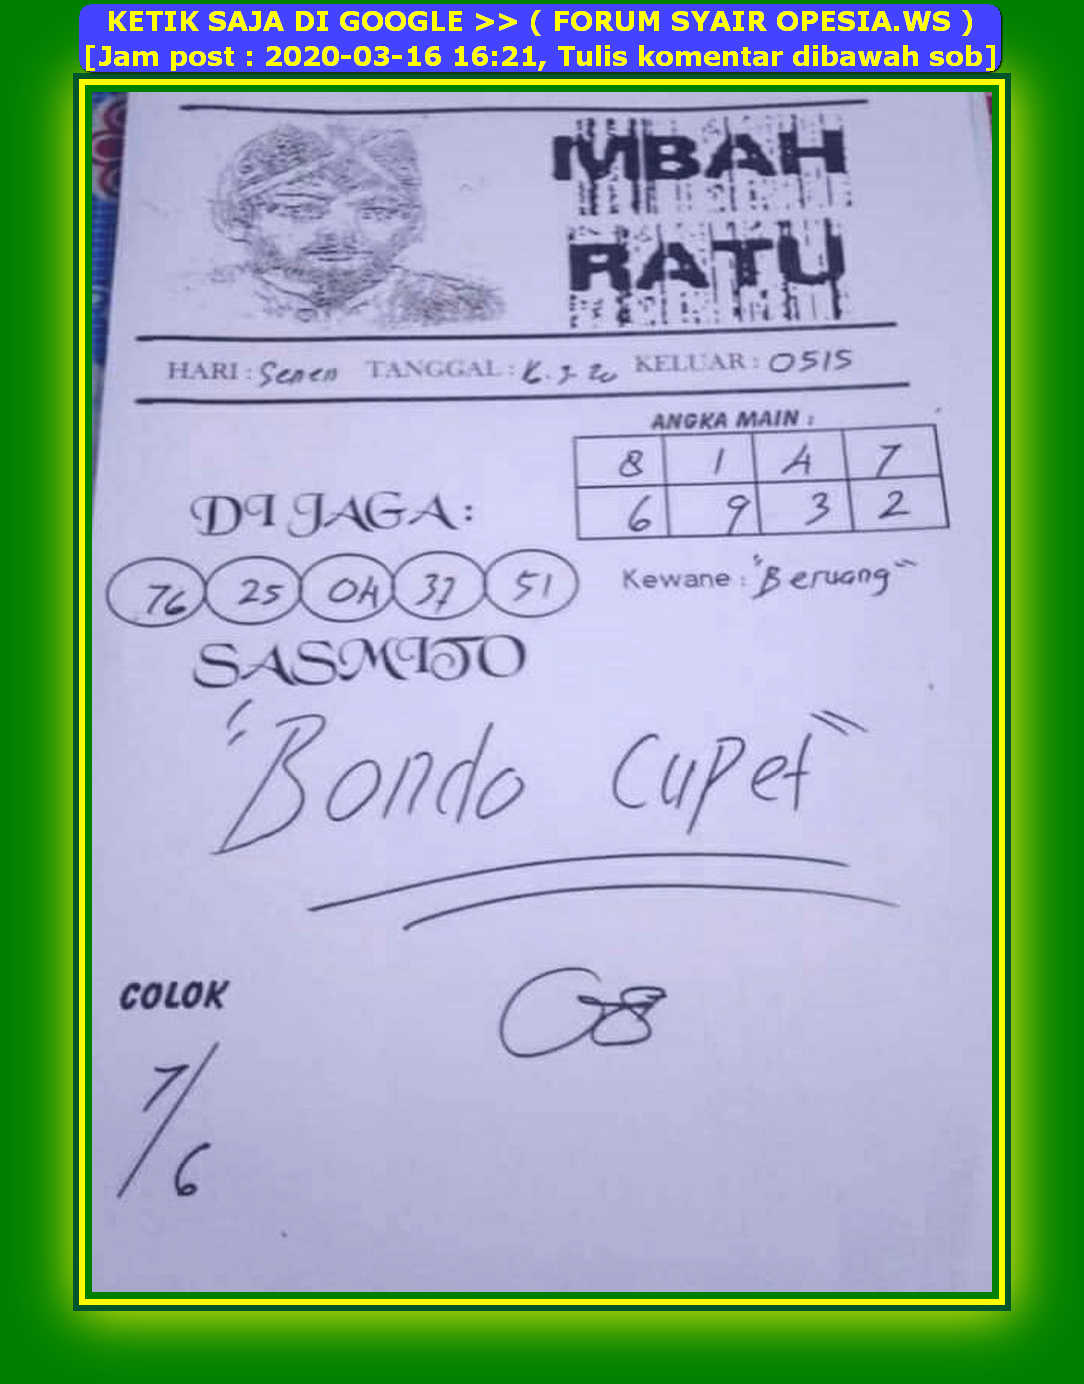 KETIK SAJA DI GOOGLE >> ( FORUM SYAIR OPESIA.WS )
[Jam post : 2020-03-16 16:21, Tulis komentar dibawah sob]
MBAH
RATU
HARI : Senen TANGGAL : 16. 3 20 KELUAR : 0515
ANGKA MAIN :
8 1 4 7
6 9 3 2
DI JAGA :
76 25 04 37 51
Kewane : "Beruang"
SASMITO
"Bondo Cupet"
COLOK
08
7/6